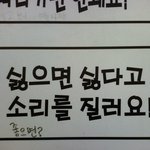 싫으면 싫다고
소리를 질러요!
좋으면?